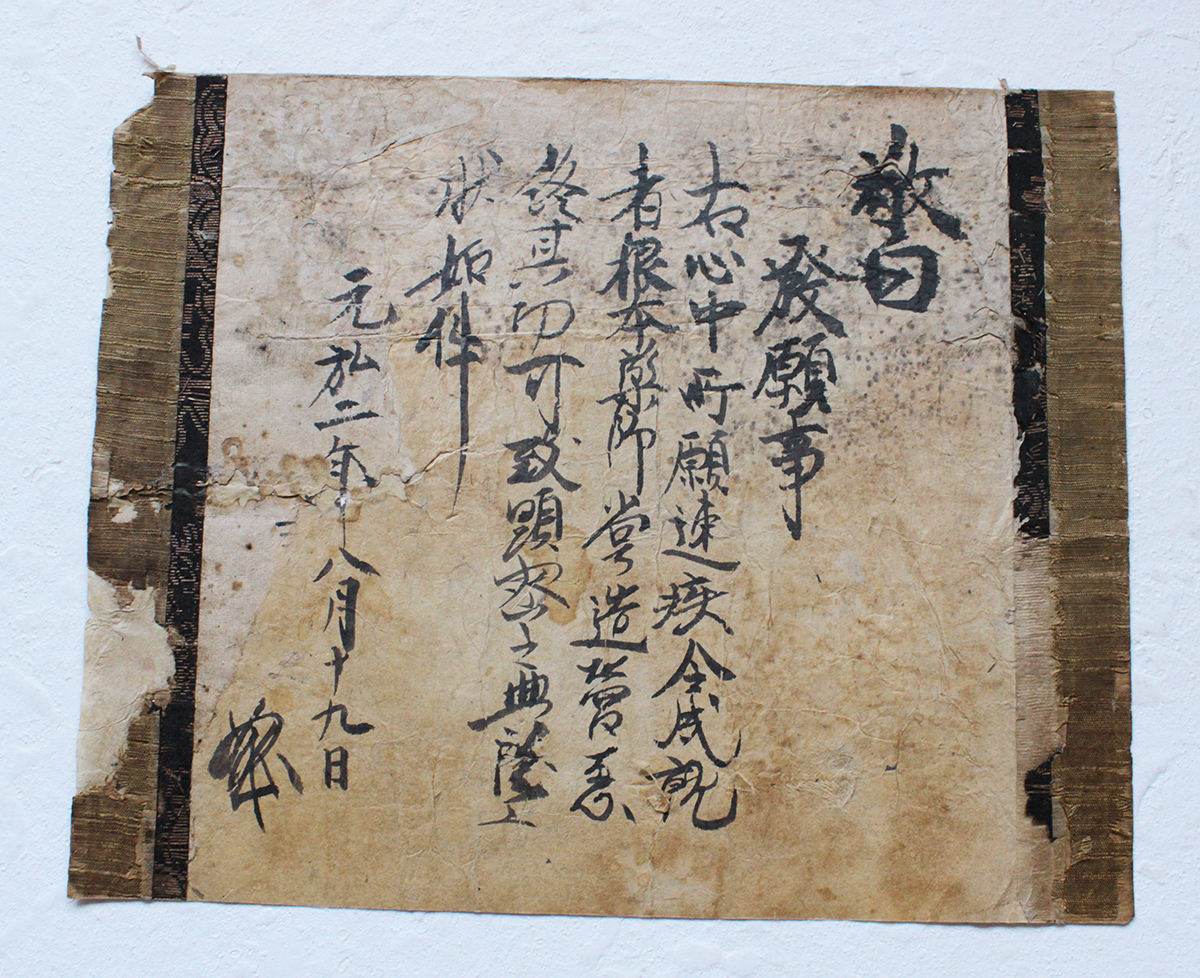 敬白
發願事
右心中所願速疾令成就
者根本薬師堂造営悉
終其功可致顕密之興隆之
状如件
元弘二年八月十九日